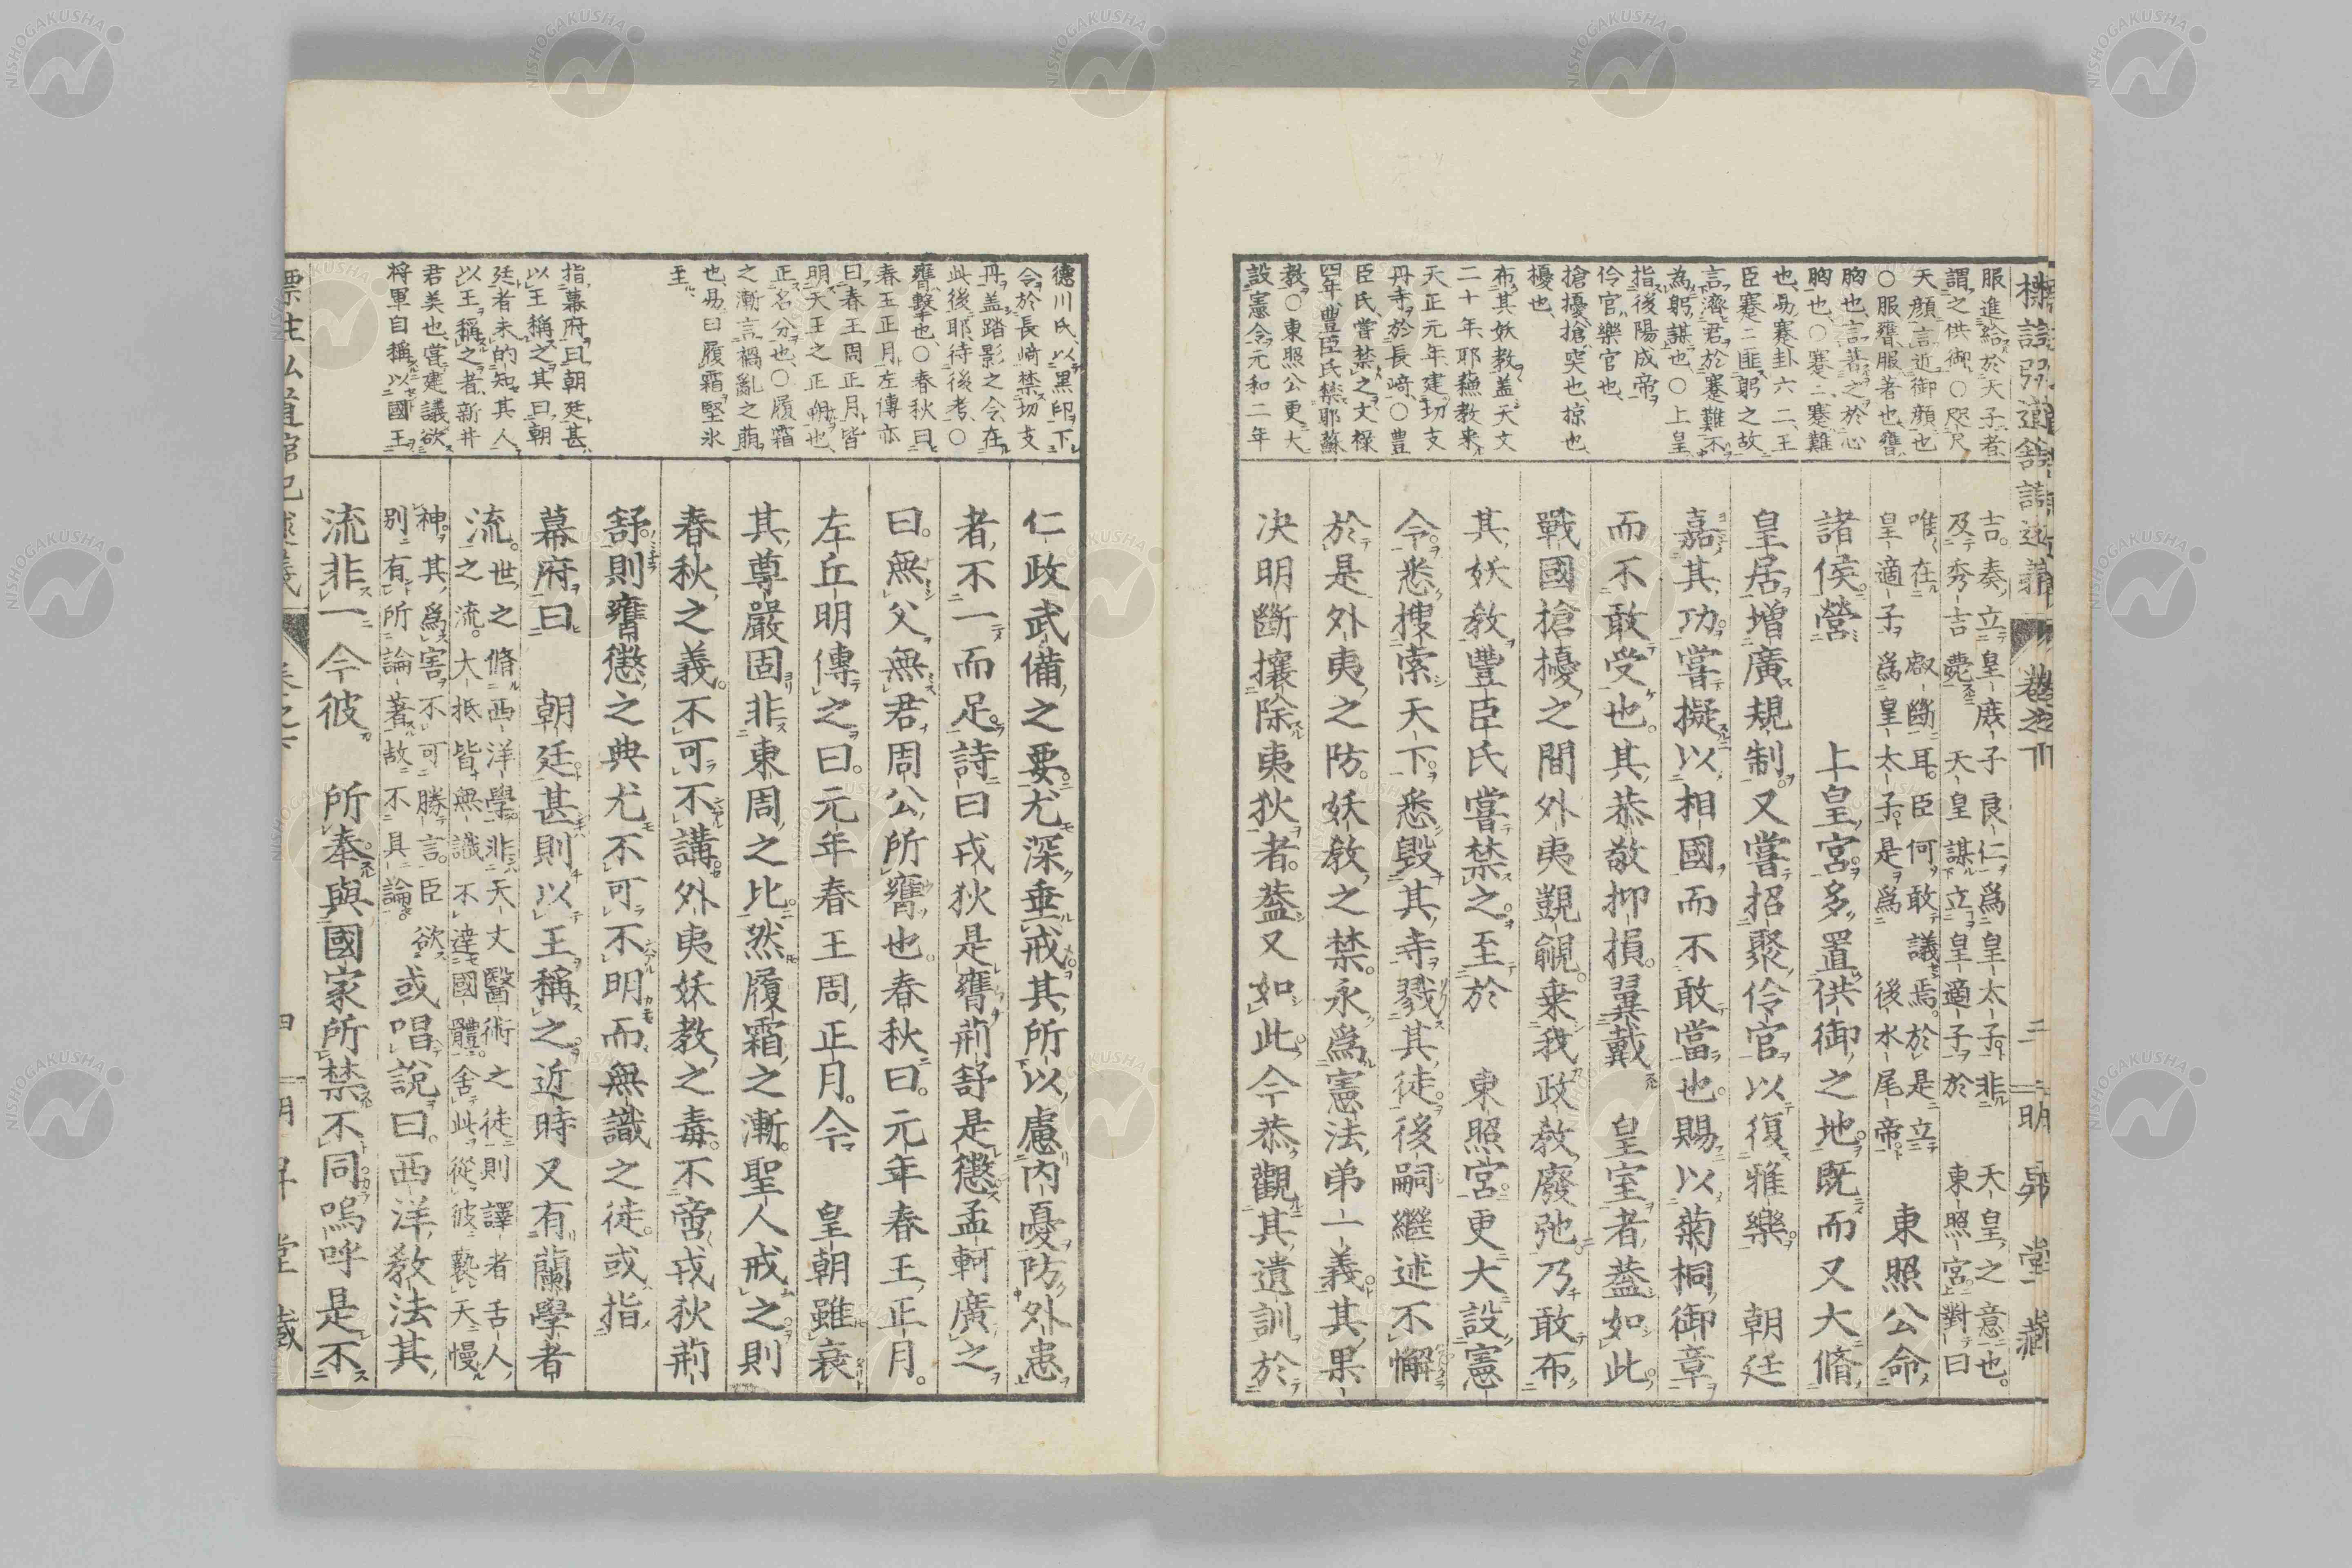 服進給於天子者、
謂之供御、〇咫尺
天顔言近御顔也
〇服膺服著也、膺
胸也、言著之於心
胸也、〇蹇二、蹇難
也、易、蹇卦六二、王
臣蹇二匪躬之故
言濟君於蹇難不
為躬謀也、〇上皇
指後陽成帝
伶官樂官也、
搶攘、搶突也、掠也、
擾也、
布其妖教蓋天文
二十年、耶蘇教来
天正元年、建切支
丹寺於長崎、〇豊
臣氏嘗禁之文禄
四年、豊臣氏禁耶蘇
教〇東照公更大
設憲令元和二年
吉。奏立皇庶子良仁爲皇太子。非天皇之意也。
及秀吉薨天皇謀立皇適子於東照宮。對曰
唯在叡斷耳。臣何敢議焉。於是立
皇適子爲皇太子。是爲後水尾帝。
東照公命
諸侯營上皇宮。多置供御之地。既而又大脩
皇居增廣規制。又嘗招聚伶官以復雅樂。朝廷
嘉其功。嘗擬以相國而不敢當也。賜以菊桐御章
而不敢受也。其恭敬抑損。翼戴皇室者蓋如此。
戰國搶攘之間外夷覬覦。乗我政教廢弛。乃敢布
其妖教豐臣氏嘗禁之。至於東照宮。更大設憲
令。悉搜索天下。悉毀其寺戮其徒。後嗣繼述不懈
於是外夷之防。妖教之禁。永爲憲法。弟一義。其果
决明斷攘除夷狄者。蓋又如此。今恭觀其遺訓於
德川氏以黒印下
令於長崎禁切支
丹蓋踏影之令在
此後耶、待後考、〇
膺擊也、〇春秋曰
春王正月左傳亦
曰春王周正月皆
明天王之正朔也、
正名分也、〇履霜
之漸言禍亂之萠
也、易曰履霜堅氷
至、
指幕府曰朝廷甚
以王稱之其曰朝
廷者未的知其人
以王稱之者、新井
君美也、嘗建議欲
將軍自稱以國王
仁政武備之要。尤深垂戒其所以慮内憂防外患
者、不一而足。詩曰戎狄是膺荊舒是懲孟軻廣之
曰。無父無君周公所膺也。春秋曰。元年春王正月。
左丘明傳之曰。元年春王周正月。今皇朝雖衰
其尊嚴固非東周之比。然履霜之漸。聖人戒之則
春秋之義。不可不講。外夷妖教之毒。不啻戎狄荊
舒則膺懲之典尤不可不明而無識之徒。或指
幕府曰朝廷。甚則以王稱之。近時又有蘭學者
流。世之脩西洋學。非天文醫術之徒則譯者舌人、
之流。大抵皆無識不達國體。舍此從彼褻天慢
神。其爲害不可勝言。臣欲
別有所論著故不具論。
或唱説曰。西洋教法其
流非一今彼所奉與國家所禁不同嗚呼是不